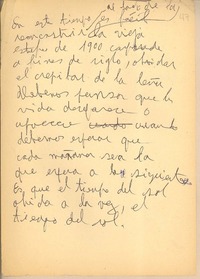 al foco de la
En este tiempo es fácil
reencontrar la vieja
estufa de 1900
a fines de siglo, olvidar
el crepitar de la leña
Debemos pensar que la
vida desaparece o
aparece cuando cuando
debemos esperar que
cada mañana sea la
que espera a la siguiente
Es que el tiempo del sol
olvida a la vez, el
tiempo del sol.